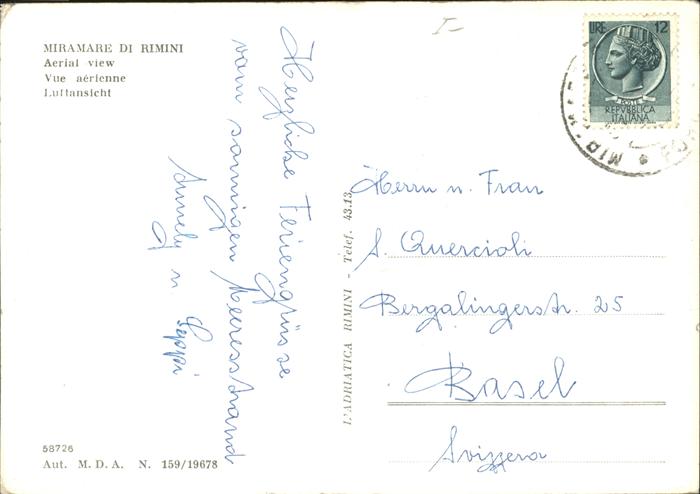 MIRAMARE DI RIMINI
Aerial view
Vue aérienne
Luftansicht
Herzliche Feriengrüsse
vom sonnigen Meeresstrand
Annely u Seppi
58726
Aut. M. D. A. N. 159/19678
L'ADRIATICA RIMINI - Telef. 43.13
LIRE 12
POSTE
REPVBBLICA
ITALIANA
Herrn u. Frau
S. Quercioli
Bergalingerstr. 25
Basel
Svizzera